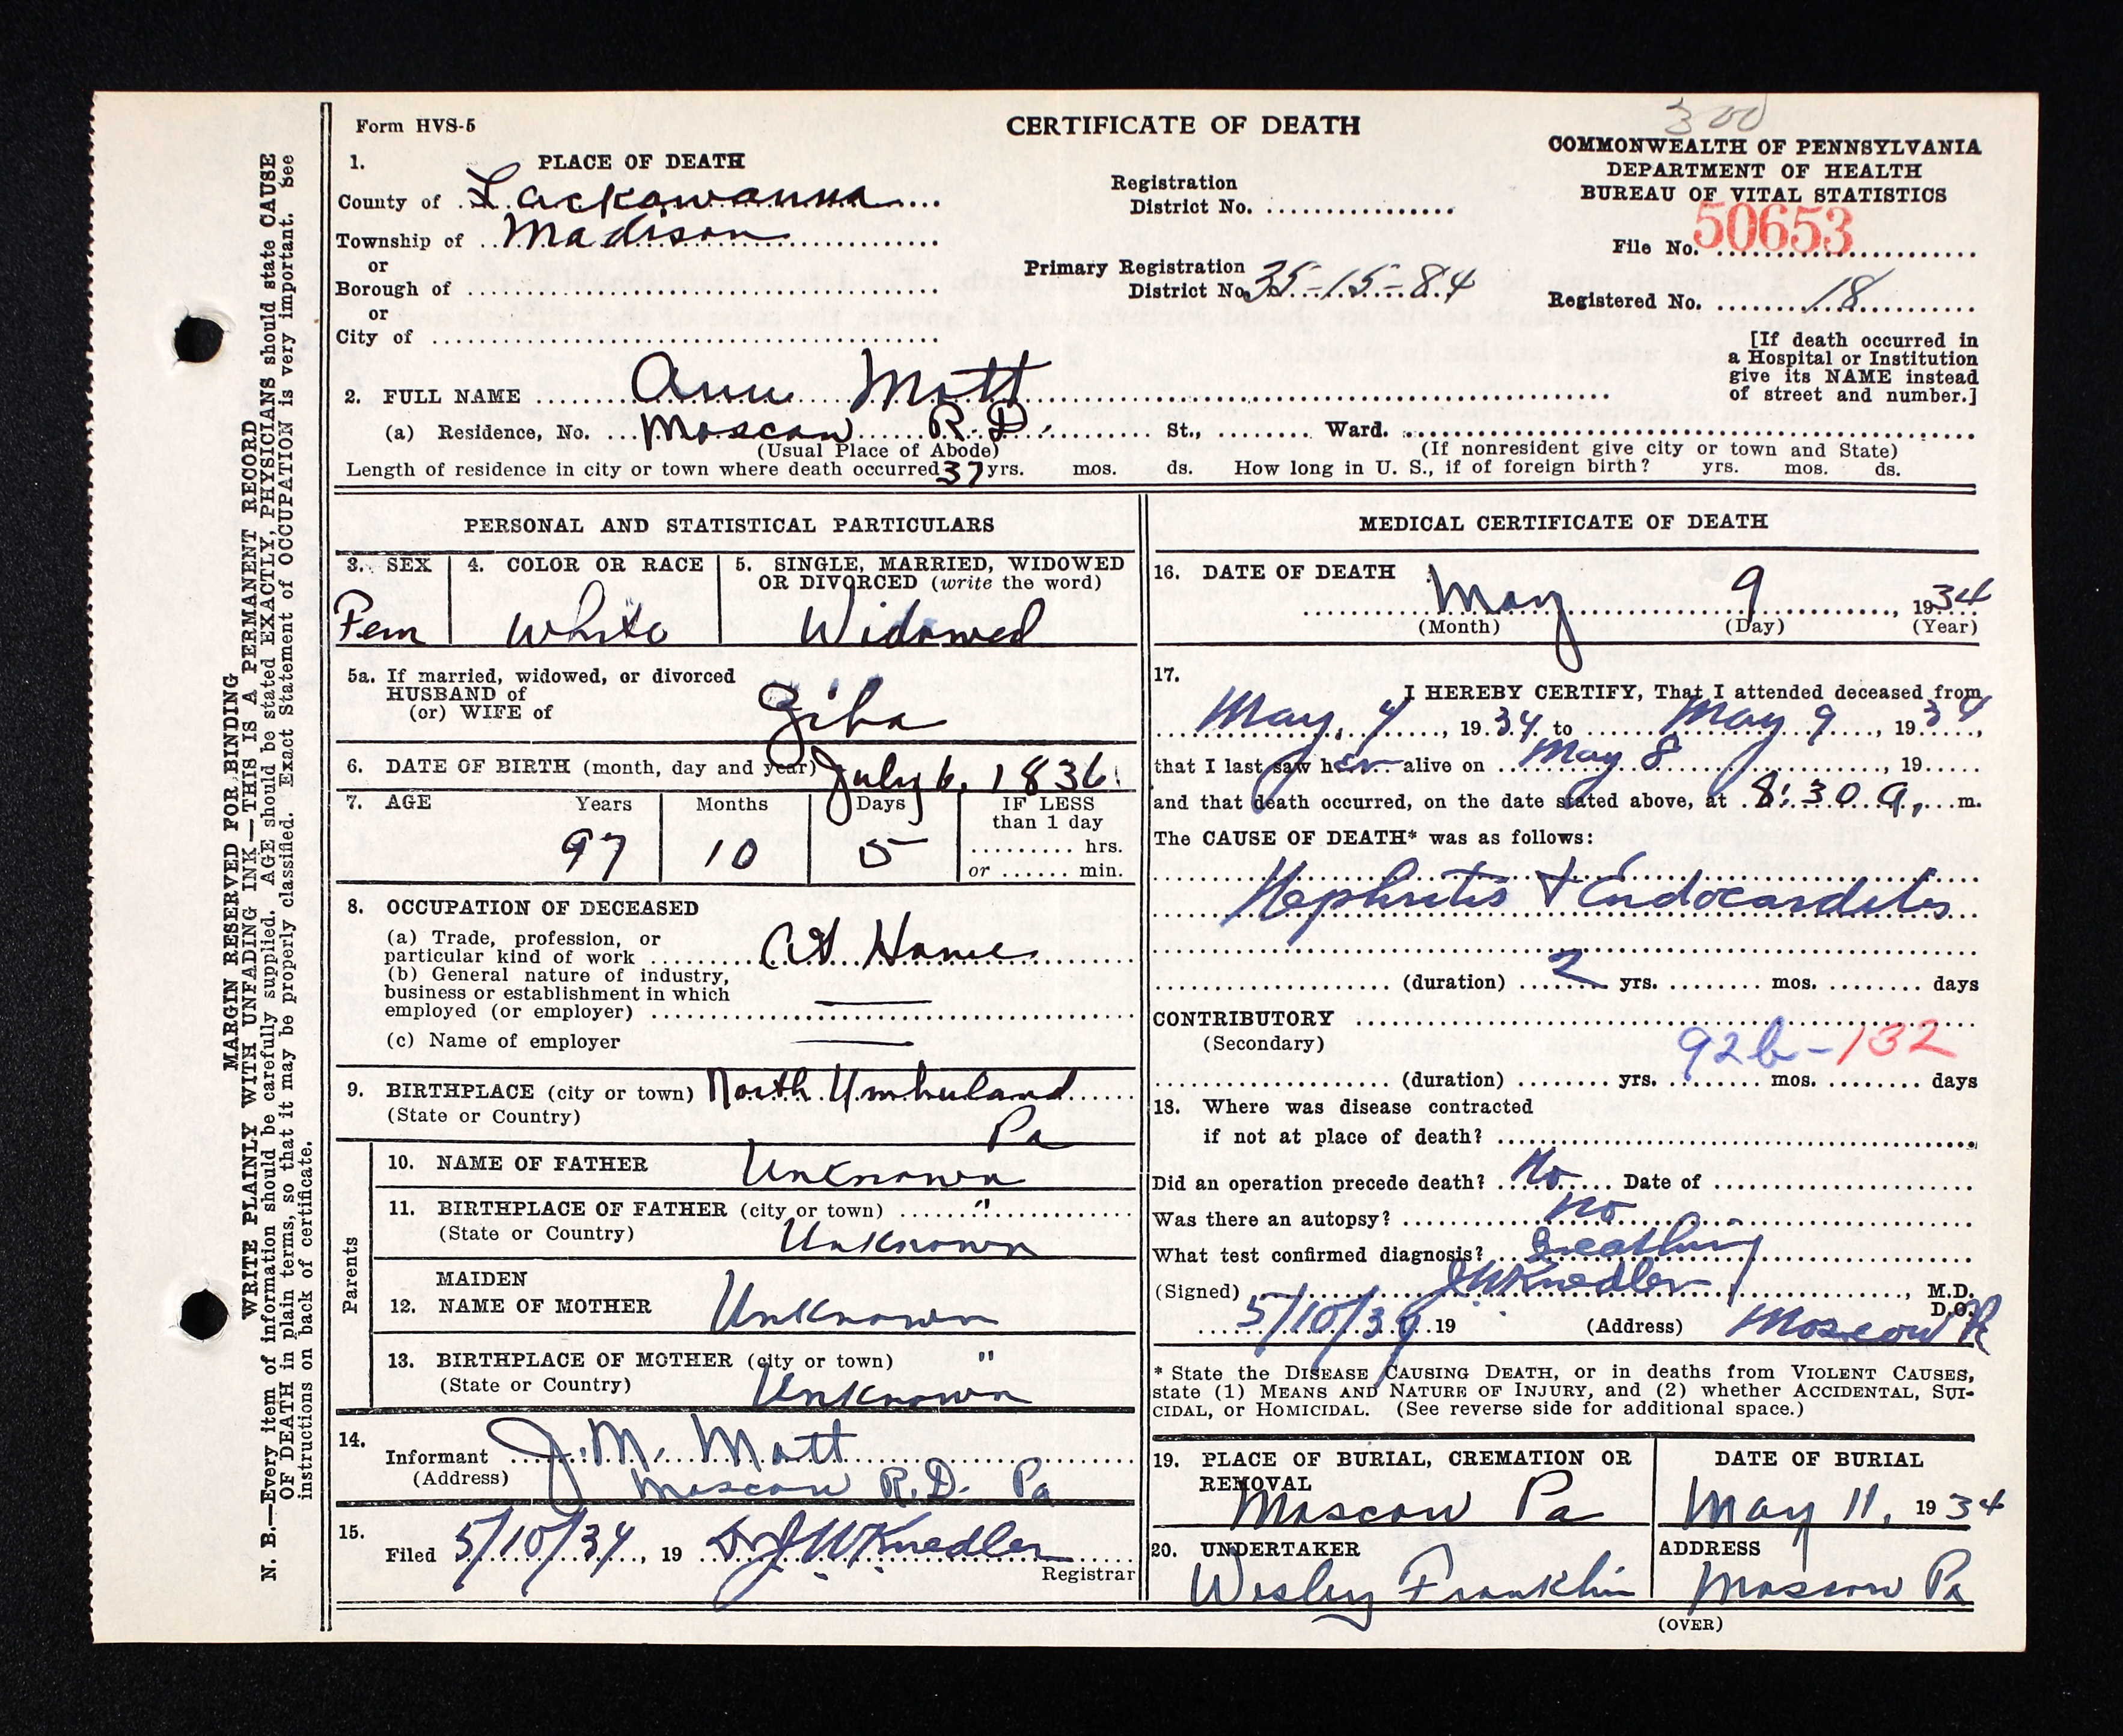 300
Form HVS-5
CERTIFICATE OF DEATH
COMMONWEALTH OF PENNSYLVANIA
DEPARTMENT OF HEALTH
BUREAU OF VITAL STATISTICS
File No. 50653
Registered No. 18
1. PLACE OF DEATH
County of Lackawanna
Township of Madison
or
Borough of
or
City of
Registration
District No.
Primary Registration
District No. 35-15-84
[If death occurred in
a Hospital or Institution
give its NAME instead
of street and number.]
2. FULL NAME Ann Mott
(a) Residence, No. Moscow R.D. St., Ward.
(Usual Place of Abode) (If nonresident give city or town and State)
Length of residence in city or town where death occurred 37 yrs. mos. ds. How long in U. S., if of foreign birth? yrs. mos. ds.
PERSONAL AND STATISTICAL PARTICULARS
3. SEX 4. COLOR OR RACE 5. SINGLE, MARRIED, WIDOWED
OR DIVORCED (write the word)
Fem White Widowed
5a. If married, widowed, or divorced
HUSBAND of
(or) WIFE of Ziba
6. DATE OF BIRTH (month, day and year) July 6, 1836
7. AGE Years Months Days IF LESS
than 1 day
hrs.
or min.
97 10 5
8. OCCUPATION OF DECEASED
(a) Trade, profession, or
particular kind of work At Home
(b) General nature of industry,
business or establishment in which
employed (or employer)
(c) Name of employer
9. BIRTHPLACE (city or town) North Umberland
(State or Country) Pa
Parents
10. NAME OF FATHER Unknown
11. BIRTHPLACE OF FATHER (city or town) "
(State or Country) Unknown
MAIDEN
12. NAME OF MOTHER Unknown
13. BIRTHPLACE OF MOTHER (city or town) "
(State or Country) Unknown
14.
Informant J. M. Mott
(Address) Moscow R.D. Pa
15.
Filed 5/10/34, 19 Dr J W Knedler
Registrar
MEDICAL CERTIFICATE OF DEATH
16. DATE OF DEATH
May 9, 1934
(Month) (Day) (Year)
17.
I HEREBY CERTIFY, That I attended deceased from
May 4, 1934 to May 9, 1934,
that I last saw her alive on May 8, 19
and that death occurred, on the date stated above, at 8:30 a, m.
The CAUSE OF DEATH* was as follows:
Nephritis + Endocarditis
(duration) 2 yrs. mos. days
CONTRIBUTORY
(Secondary) 92b-132
(duration) yrs. mos. days
18. Where was disease contracted
if not at place of death?
Did an operation precede death? No Date of
Was there an autopsy? no
What test confirmed diagnosis? Breathing
(Signed) J W Knedler, M.D.
D.O.
5/10/34 19 (Address) Moscow Pa
* State the DISEASE CAUSING DEATH, or in deaths from VIOLENT CAUSES,
state (1) MEANS AND NATURE OF INJURY, and (2) whether ACCIDENTAL, SUI-
CIDAL, or HOMICIDAL. (See reverse side for additional space.)
19. PLACE OF BURIAL, CREMATION OR
REMOVAL
Moscow Pa
DATE OF BURIAL
May 11, 1934
20. UNDERTAKER
Wesley Franklin
ADDRESS
Moscow Pa
(OVER)
MARGIN RESERVED FOR BINDING
WRITE PLAINLY WITH UNFADING INK—THIS IS A PERMANENT RECORD
N. B.—Every item of information should be carefully supplied. AGE should be stated EXACTLY, PHYSICIANS should state CAUSE
OF DEATH in plain terms, so that it may be properly classified. Exact Statement of OCCUPATION is very important. See
instructions on back of certificate.